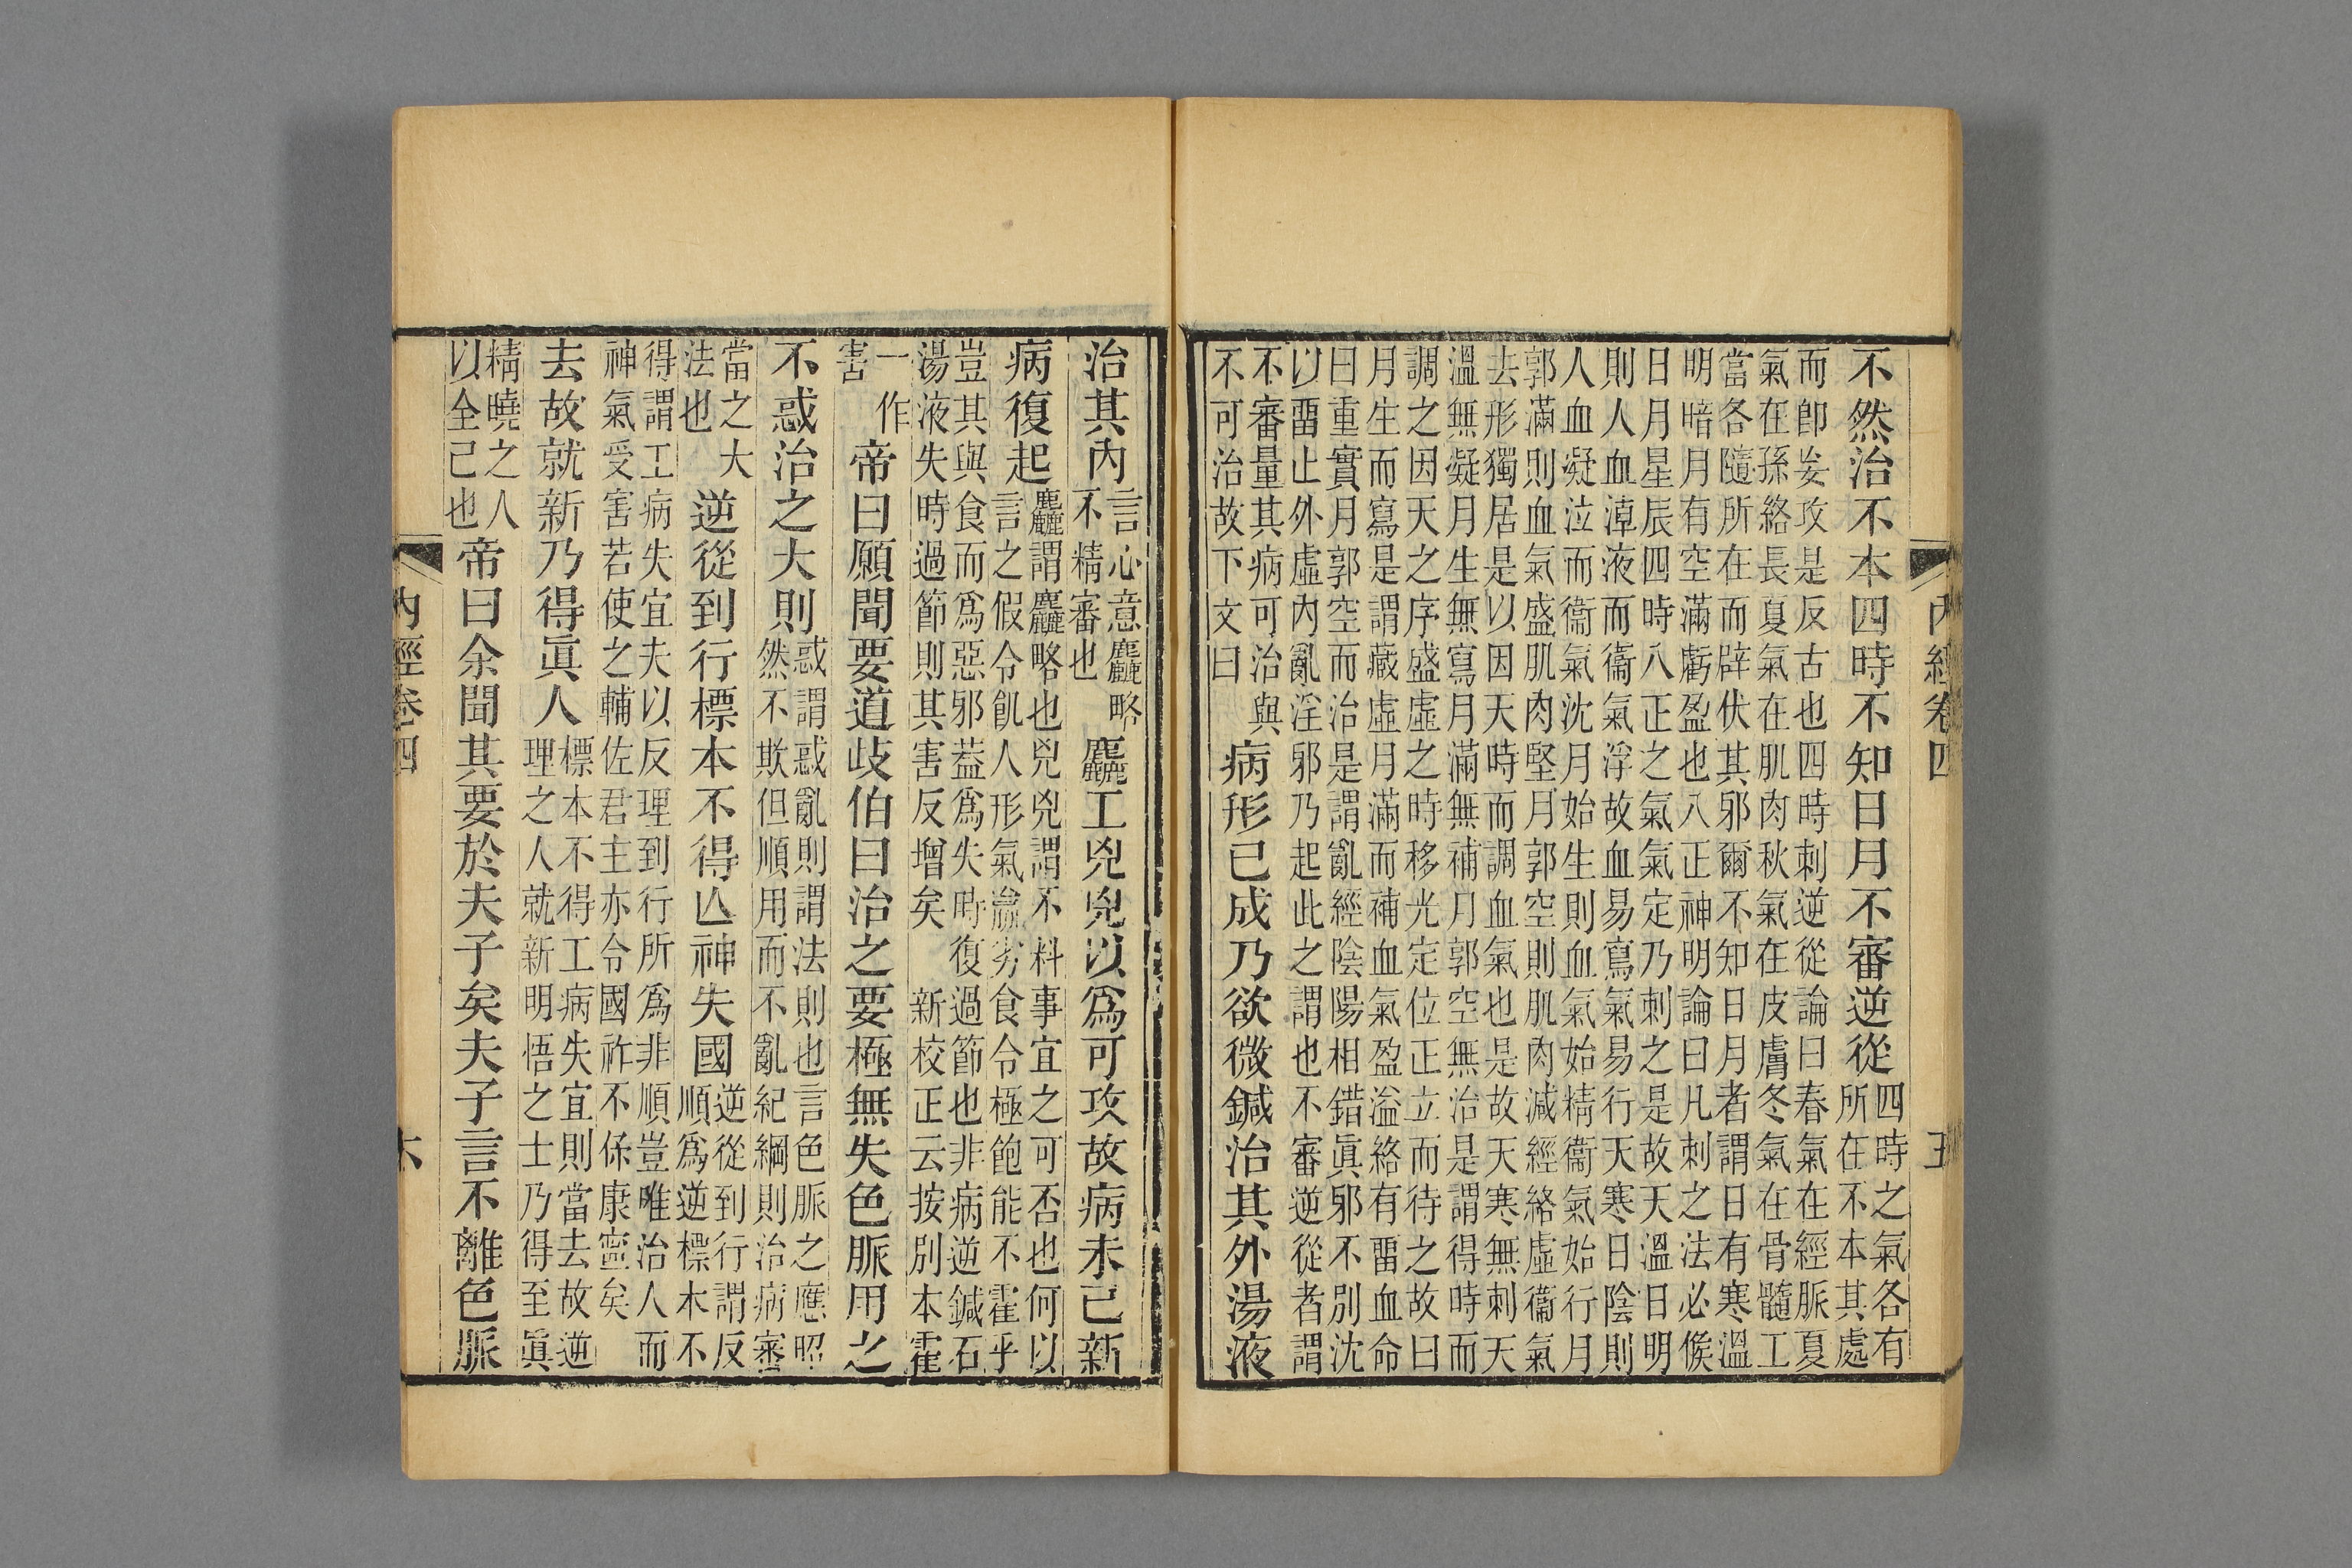 內經卷四 五
不然治不本四時不知日月不審逆從
四時之氣各有
所在不本其處
而卽妄攻是反古也四時刺逆從論曰春氣在經脈夏
氣在孫絡長夏氣在肌肉秋氣在皮膚冬氣在骨髓工
當各隨所在而辟伏其邪爾不知日月者謂日有寒溫
明暗月有空滿虧盈也八正神明論曰凡刺之法必候
日月星辰四時八正之氣氣定乃刺之是故天溫日明
則人血淖液而衞氣浮故血易寫氣易行天寒日陰則
人血凝泣而衞氣沈月始生則血氣始精衞氣始行月
郭滿則血氣盛肌肉堅月郭空則肌肉減經絡虛衞氣
去形獨居是以因天時而調血氣也是故天寒無刺天
溫無凝月生無寫月滿無補月郭空無治是謂得時而
調之因天之序盛虛之時移光定位正立而待之故曰
月生而寫是謂藏虛月滿而補血氣盈溢絡有畱血命
曰重實月郭空而治是謂亂經陰陽相錯眞邪不別沈
以畱止外虛內亂淫邪乃起此之謂也不審逆從者謂
不審量其病可治與
不可治故下文曰
病形已成乃欲微鍼治其外湯液
治其內
言心意麤略
不精審也
麤工兇兇以爲可攻故病未已新
病復起
麤謂麤略也兇兇謂不料事宜之可否也何以
言之假令飢人形氣羸劣食令極飽能不霍乎
豈其與食而爲惡邪葢爲失時復過節也非病逆鍼石
湯液失時過節則其害反增矣 新校正云按別本霍
一作
害
帝曰願聞要道歧伯曰治之要極無失色脈用之
不惑治之大則
惑謂惑亂則謂法則也言色脈之應昭
然不欺但順用而不亂紀綱則治病審
當之大
法也
逆從到行標本不得亾神失國
逆從到行謂反
順爲逆標本不
得謂工病失宜夫以反理到行所爲非順豈唯治人而
神氣受害若使之輔佐君主亦令國祚不保康寧矣
去故就新乃得眞人
標本不得工病失宜則當去故逆
理之人就新明悟之士乃得至眞
精曉之人
以全己也
帝曰余聞其要於夫子矣夫子言不離色脈
內經卷四